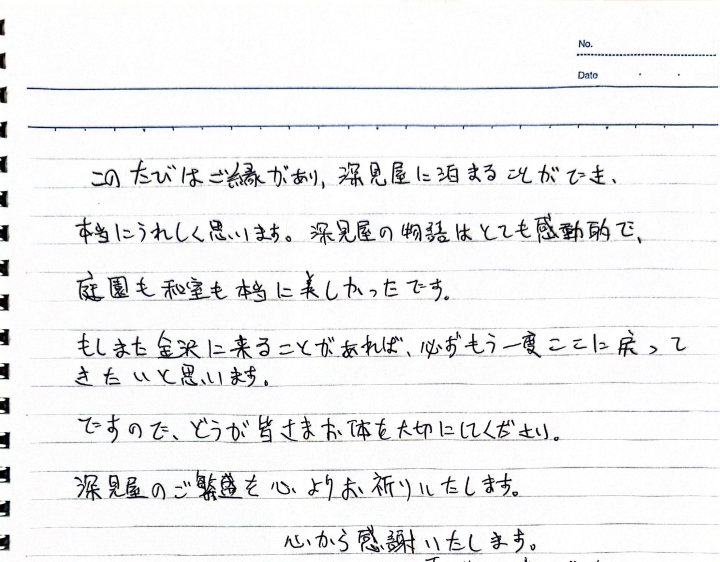 No.
Date
このたびはご縁があり、深見屋に泊まることができ、
本当にうれしく思います。深見屋の物語はとても感動的で、
庭園も和室も本当に美しかったです。
もしまた金沢に来ることがあれば、必ずもう一度ここに戻って
きたいと思います。
ですので、どうか皆さまお体を大切にしてください。
深見屋のご繁盛を心よりお祈りいたします。
心から感謝いたします。